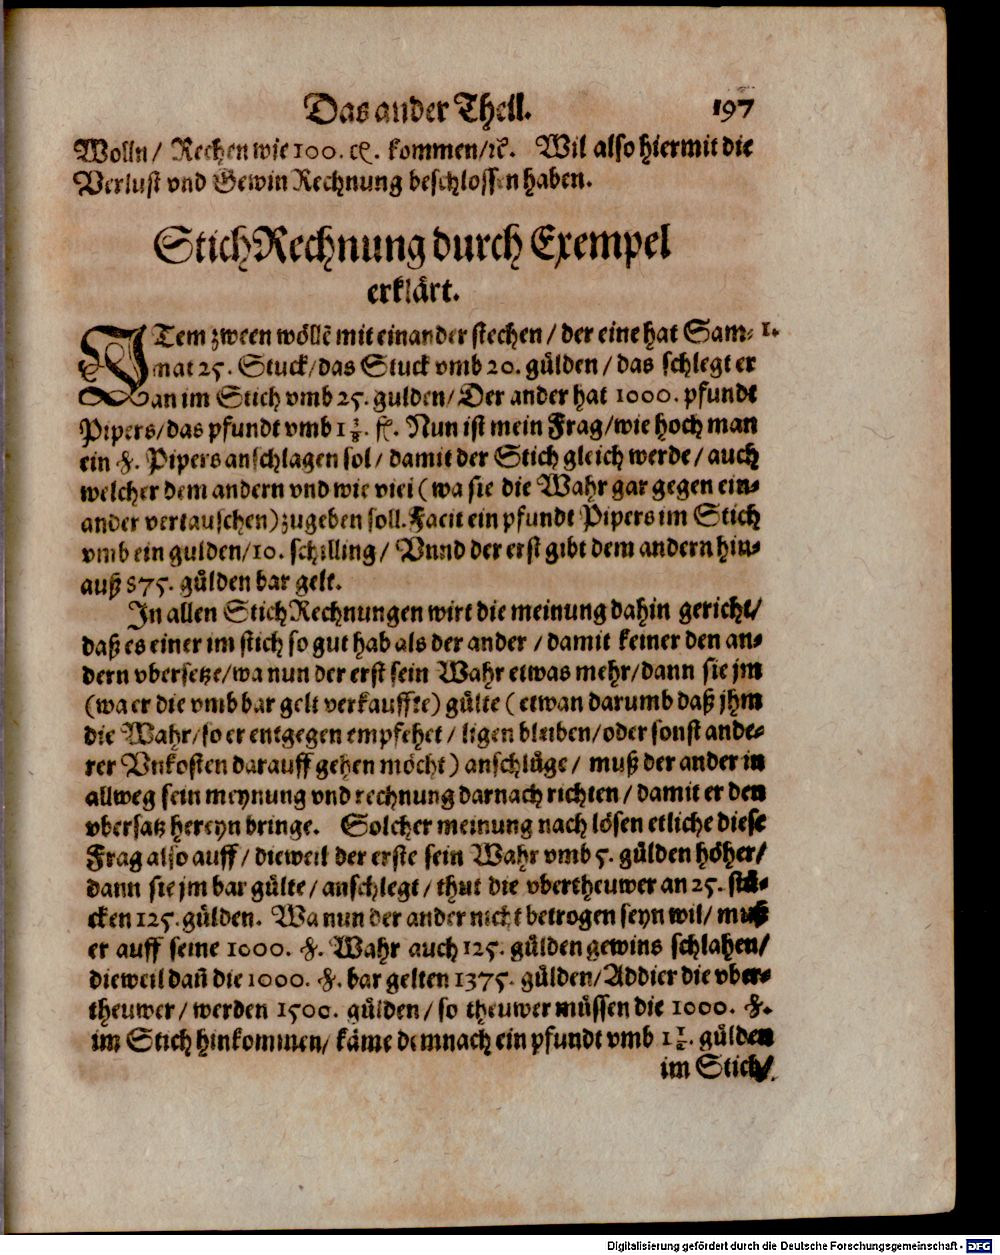 Das ander Theil. 197
Wolln / Rechen wie 100. ℔. kommen / ꝛc. Wil also hiermit die
Verlust vnd Gewin Rechnung beschlossen haben.
Stich Rechnung durch Exempel
erklärt.
ITem zween wöllē mit einander stechen / der eine hat Sam⸗ 1.
mat 25. Stuck / das Stuck vmb 20. gülden / das schlegt er
an im Stich vmb 25. gulden / Der ander hat 1000. pfundt
Pipers / das pfundt vmb 1 3/8. fl. Nun ist mein Frag / wie hoch man
ein ℔. Pipers anschlagen sol / damit der Stich gleich werde / auch
welcher dem andern vnd wie viel (wa sie die Wahr gar gegen ein⸗
ander vertauschen) zugeben soll. Facit ein pfundt Pipers im Stich
vmb ein gulden / 10. schilling / Vnnd der erst gibt dem andern hin⸗
auß 875. gülden bar gelt.
In allen Stich Rechnungen wirt die meinung dahin gericht /
daß es einer im stich so gut hab als der ander / damit keiner den an⸗
dern vbersetze / wa nun der erst sein Wahr etwas mehr / dann sie jm
(wa er die vmb bar gelt verkauffte) gülte (etwan darumb daß jhm
die Wahr / so er entgegen empfehet / ligen bleiben / oder sonst ande⸗
rer Vnkosten darauff gehen möcht) anschlüge / muß der ander in
allweg sein meynung vnd rechnung darnach richten / damit er den
vbersatz hereyn bringe. Solcher meinung nach lösen etliche diese
Frag also auff / dieweil der erste sein Wahr vmb 5. gülden höher /
dann sie jm bar gülte / anschlegt / thut die vbertheuwer an 25. stü⸗
cken 125. gülden. Wa nun der ander nicht betrogen seyn wil / muß
er auff seine 1000. ℔. Wahr auch 125. gülden gewins schlahen /
dieweil dañ die 1000. ℔. bar gelten 1375. gülden / Addier die vber⸗
theuwer / werden 1500. gülden / so theuwer müssen die 1000. ℔.
im Stich hinkommen / käme demnach ein pfundt vmb 1 1/2. gülden
im Stich /
Digitalisierung gefördert durch die Deutsche Forschungsgemeinschaft - DFG